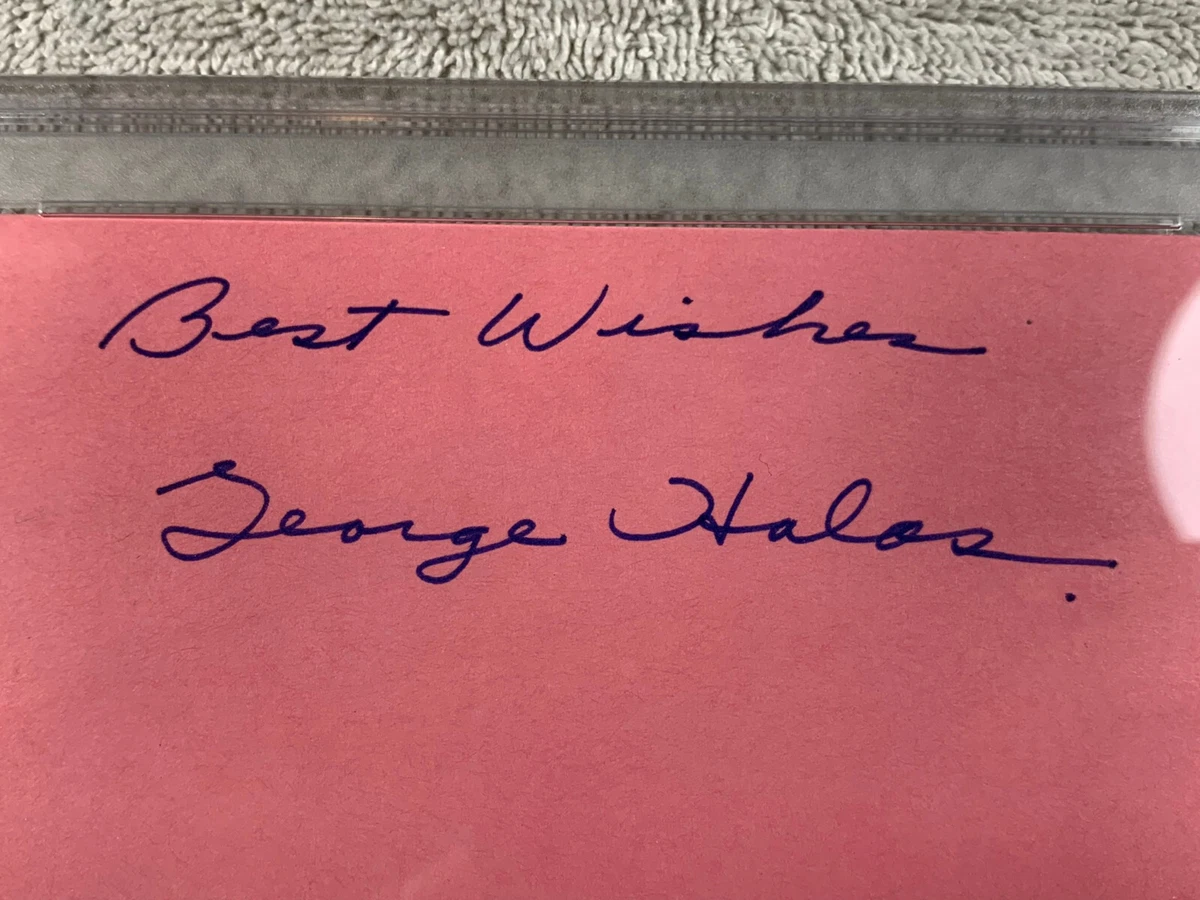 Best Wishes
George Halas.